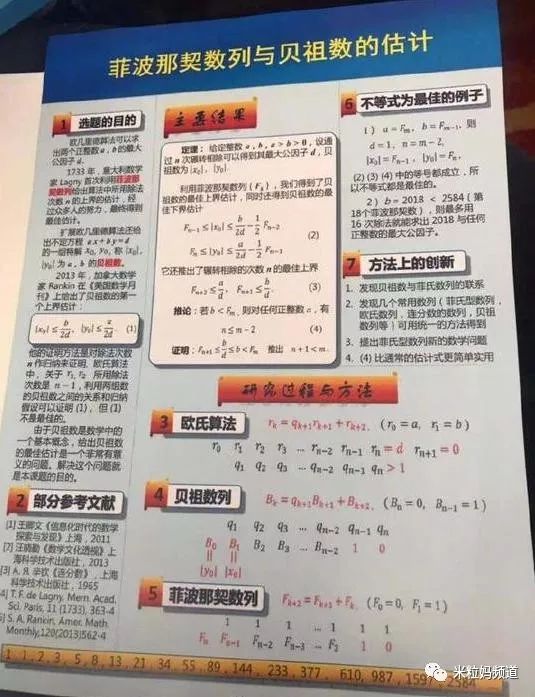 菲波那契数列与贝祖数的估计
1 选题的目的
欧几里德算法可以求
出两个正整数 a , b 的最大
公因子 d .
1733 年 , 意大利数学
家 Lagny 首次利用菲波那
契数列给出算法中所用除法
次数 n 的上界的估计 , 经
过众多人的努力 , 最终得到
最佳估计 。
扩展欧几里德算法还给
出不定方程 ax+by=d
的一组特解 x₀, y₀, 称 |x₀|,
|y₀| 为 a , b 的贝祖数。
2013 年 , 加拿大数学
家 Rankin 在《美国数学月
刊》上给出了贝祖数的第一
个上界估计 :
|x₀| ≤ b/2d , |y₀| ≤ a/2d . (1)
他的证明方法是对除法次数
n 作归纳来证明. 欧氏算法
中 , 关于 r₁, r₂ 所用除法
次数是 n − 1 , 利用两组数
的贝祖数之间的关系和归纳
假设可以证明 (1) , 但 (1)
不是最佳的。
由于贝祖数是数学中的
一个基本概念 , 给出贝祖数
的最佳估计是一个非常有意
义的问题。解决这个问题就
是本课题的目的。
2 部分参考文献
[1] 王卿文《信息化时代的数学
探索与发现》上海 , 2011
王晓勤《数学文化透视》上
海科学技术出版社 , 2013
[3] A. Я. 辛钦《连分数》, 上海
科学技术出版社 , 1965
4] T. F. de Lagny, Mem. Acad.
Sci. Paris, 11 (1733), 363-4
5] S. A. Rankin, Amer. Math.
Monthly, 120(2013)562-4
主要结果
定理 : 给定整数 a , b , a > b > 0 , 设通
过 n 次辗转相除可以得到其最大公因子 d , 贝
祖数为 |x₀|, |y₀|.
利用菲波那契数列 {Fₖ} , 我们得到了贝
祖数的最佳上界估计 , 同时还得到贝祖数的最
佳下界估计
Fₙ₋₁ ≤ |x₀| ≤ b/2d − 1/2 Fₙ₋₂
(2)
Fₙ ≤ |y₀| ≤ a/2d − 1/2 Fₙ₋₁
它还推出了辗转相除的次数 n 的最佳上界
Fₙ₊₂ ≤ a/d , Fₙ₊₁ ≤ b/d . (3)
推论 : 若 b < Fₘ , 则对任何正整数 a , 有
n ≤ m − 2 (4)
证明 : Fₙ₊₁ ≤ b/d ≤ b < Fₘ 推出 n + 1 < m .
6 不等式为最佳的例子
1 ) a = Fₘ , b = Fₘ₋₁ , 则
d = 1, n = m − 2,
|x₀| = Fₙ₋₁ , |y₀| = Fₙ .
(2) (3) (4) 中的等号都成立 , 所
以不等式都是最佳的。
2 ) b = 2018 < 2584 ( 第
18个菲波那契数 ) , 则最多用
16 次除法就能求出 2018 与任何
正整数的最大公因子。
7 方法上的创新
1. 发现贝祖数与菲氏数列的联系
2. 发现几个常用数列 ( 菲氏型数列 ,
欧氏数列 , 连分数的数列 , 贝祖
数列等 ) 可用统一的方法得到
3. 提出菲氏型数列新的数学问题
4. (4) 比通常的估计式更简单实用
研究过程与方法
3 欧氏算法 rₖ = qₖ₊₁rₖ₊₁ + rₖ₊₂ , (r₀ = a, r₁ = b)
r₀ r₁ r₂ r₃ … rₙ₋₂ rₙ₋₁ rₙ = d rₙ₊₁ = 0
q₁ q₂ q₃ … qₙ₋₂ qₙ₋₁ qₙ > 1
4 贝祖数列 Bₖ = qₖ₊₁Bₖ₊₁ + Bₖ₊₂ , (Bₙ = 0, Bₙ₋₁ = 1)
q₁ q₂ q₃ … qₙ₋₂ qₙ₋₁ qₙ
B₀ B₁ B₂ B₃ … Bₙ₋₂ 1 0
|| ||
|y₀| |x₀|
5 菲波那契数列 Fₖ₊₂ = Fₖ₊₁ + Fₖ , (F₀ = 0, F₁ = 1)
1 1 1 … 1 1 1
Fₙ Fₙ₋₁ Fₙ₋₂ Fₙ₋₃ … F₂ 1 0
1, 1, 2, 3, 5, 8, 13, 21, 34, 55, 89, 144, 233, 377, 610, 987, 1597, 2584
米粒妈频道